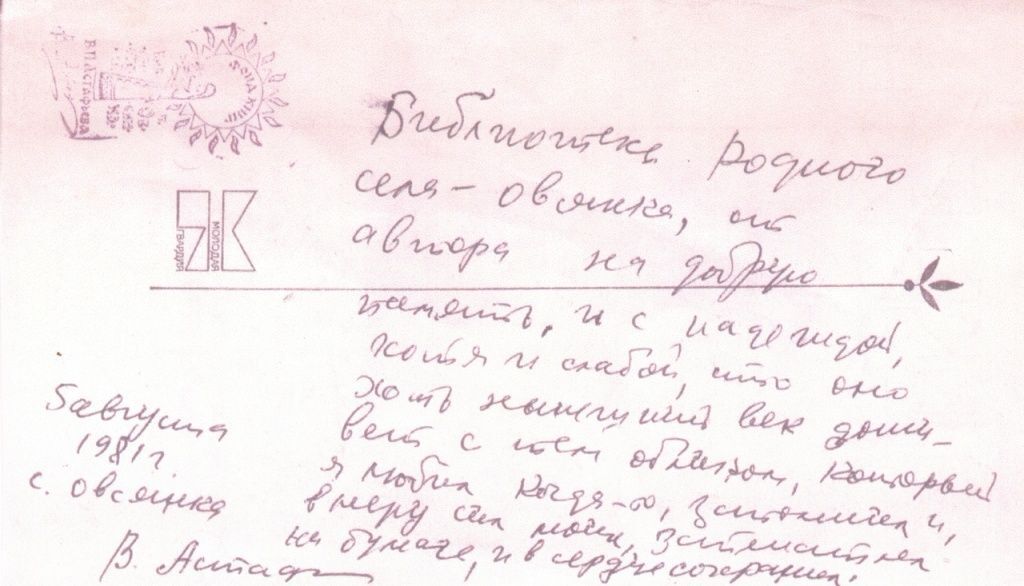 В.П. АСТАФЬЕВА
МОЛОДАЯ
ГВАРДИЯ
Библиотеке родного
села – Овсянка, от
автора на добрую
память, и с надеждой,
хотя и слабой, что оно
хоть нынешний век дожи-
вет с тем обликом, который
я любил когда-то, запомнил и,
в меру сил моих, запечатлел
на бумаге, и в сердце сохранил.
5 августа
1981 г.
с. Овсянка
В. Астаф